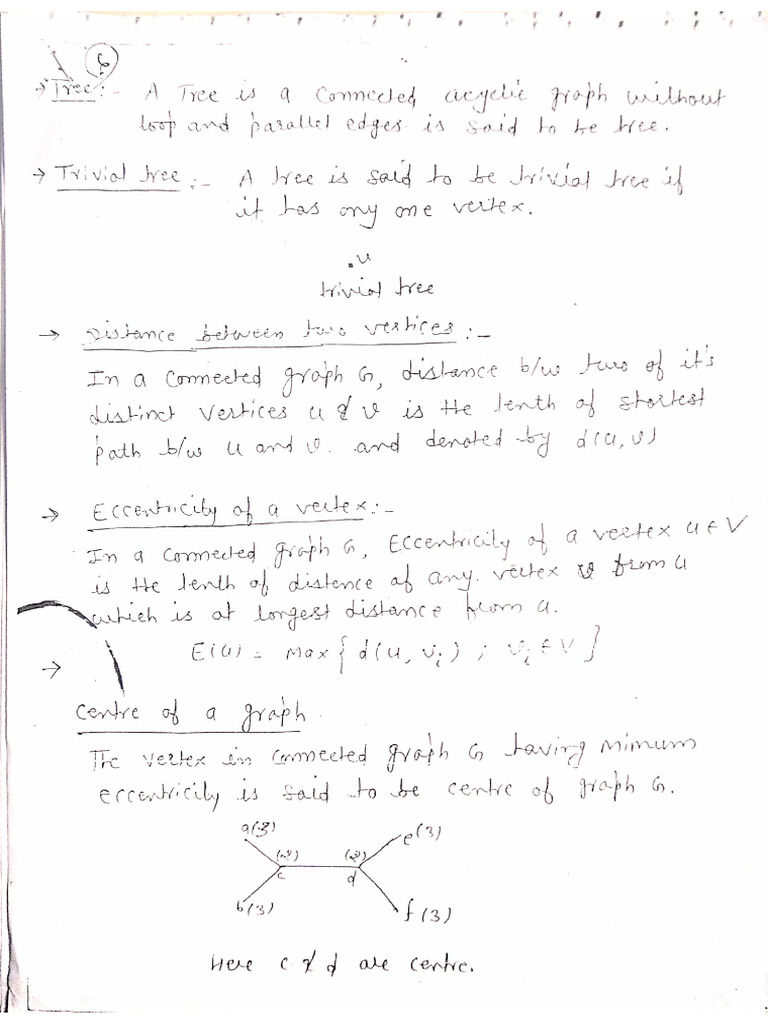 6
→ Tree :- A Tree is a connected acyclic graph without
loop and parallel edges is said to be tree.
→ Trivial tree :- A tree is said to be trivial tree if
it has any one vertex.
.u
trivial tree
→ Distance between two vertices :-
In a connected graph G, distance b/w two of it's
distinct vertices u & v is the lenth of shortest
path b/w u and v. and denoted by d(u, v)
→ Eccentricity of a vertex :-
In a connected graph G, Eccentricity of a vertex u ∈ V
is the lenth of distence of any. vertex v from u
which is at longest distance from u.
E(u) = Max { d(u, vi) ; vi ∈ V }
→
Centre of a graph
The vertex in connected graph G having mimum
eccentricity is said to be centre of graph G.
a(3) (2) (2) e(3)
c d
b(3) f(3)
Here c & d are centre.